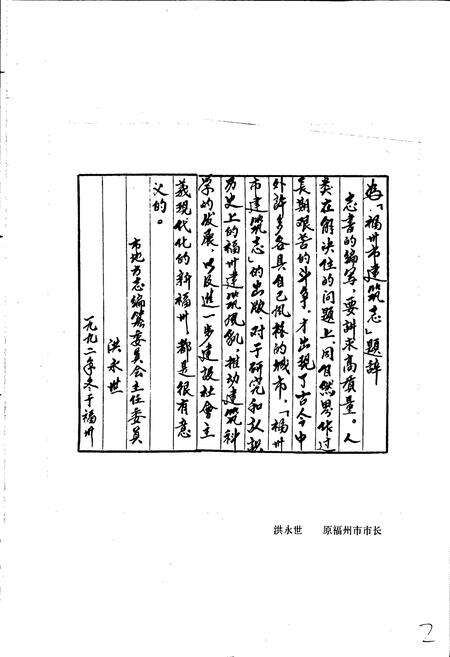 为「福州市建筑志」题辞
志书的编写，要讲求高质量。人
类在解决住的问题上，同自然界作过
长期艰苦的斗争，才出现了古今中
外许多各具自己风格的城市，「福州
市建筑志」的出版，对于研究和认识
历史上的福州建筑风貌，推动建筑科
学的发展，以及进一步建设社会主
义现代化的新福州，都是很有意
义的。
市地方志编纂委员会主任委员
洪永世
一九九二年冬于福州
洪永世 原福州市市长
2